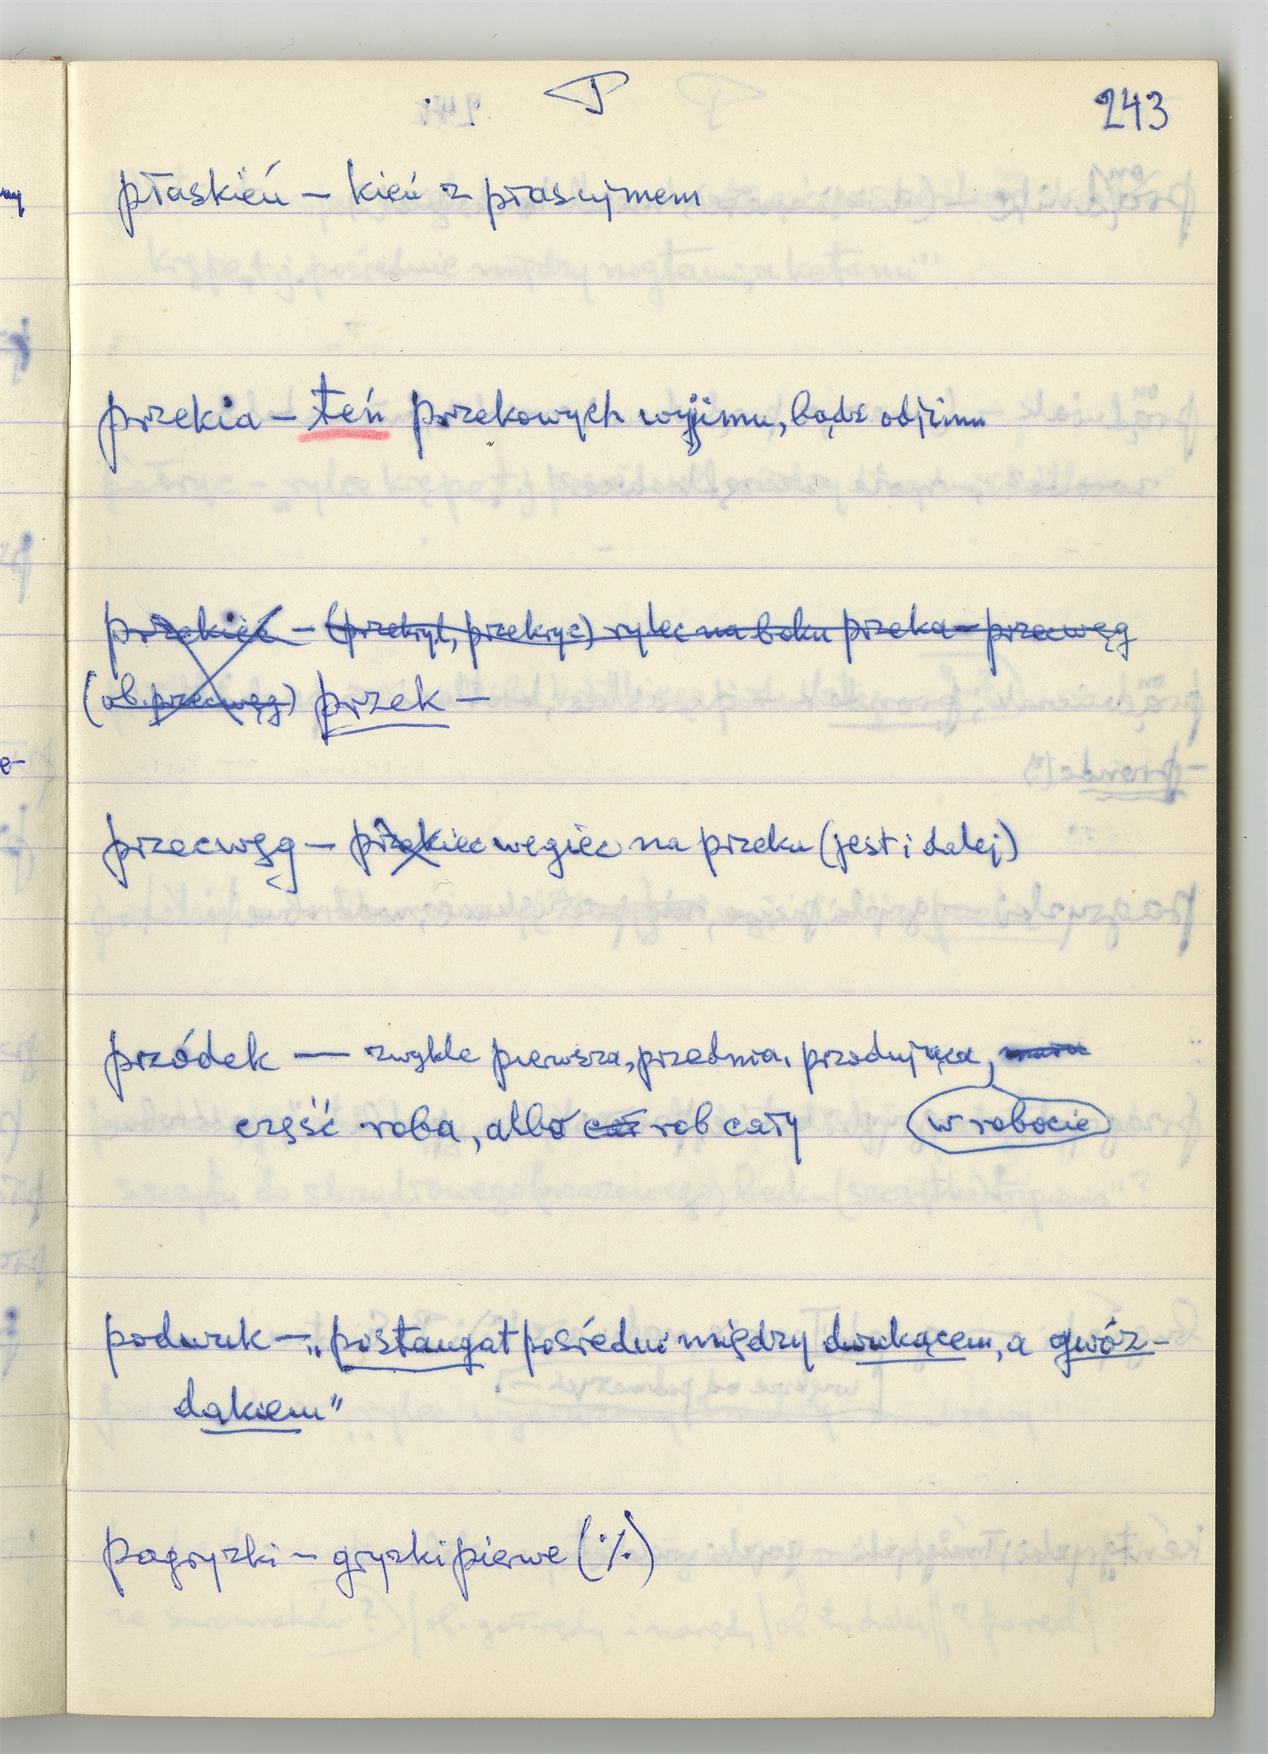 P
243
płaskień – kień z płasnjmem
przekia – teń przekowych wyjimu, bądź odjimu
przekiec – (przekyl, przekryc) rylec na boku przeka – przecwęg
(ob. przecwęg) przek –
przecwęg – przekiec węgiec na przeku (jest i dalej)
przódek — zwykle pierwsza, przednia, przodująca,
część roba, albo cał rob cały w robocie
podwuk – „postangat pośredni między dwukącem, a gwóz-
dakiem”
pagryzki – gryzki pierwe (·/.)